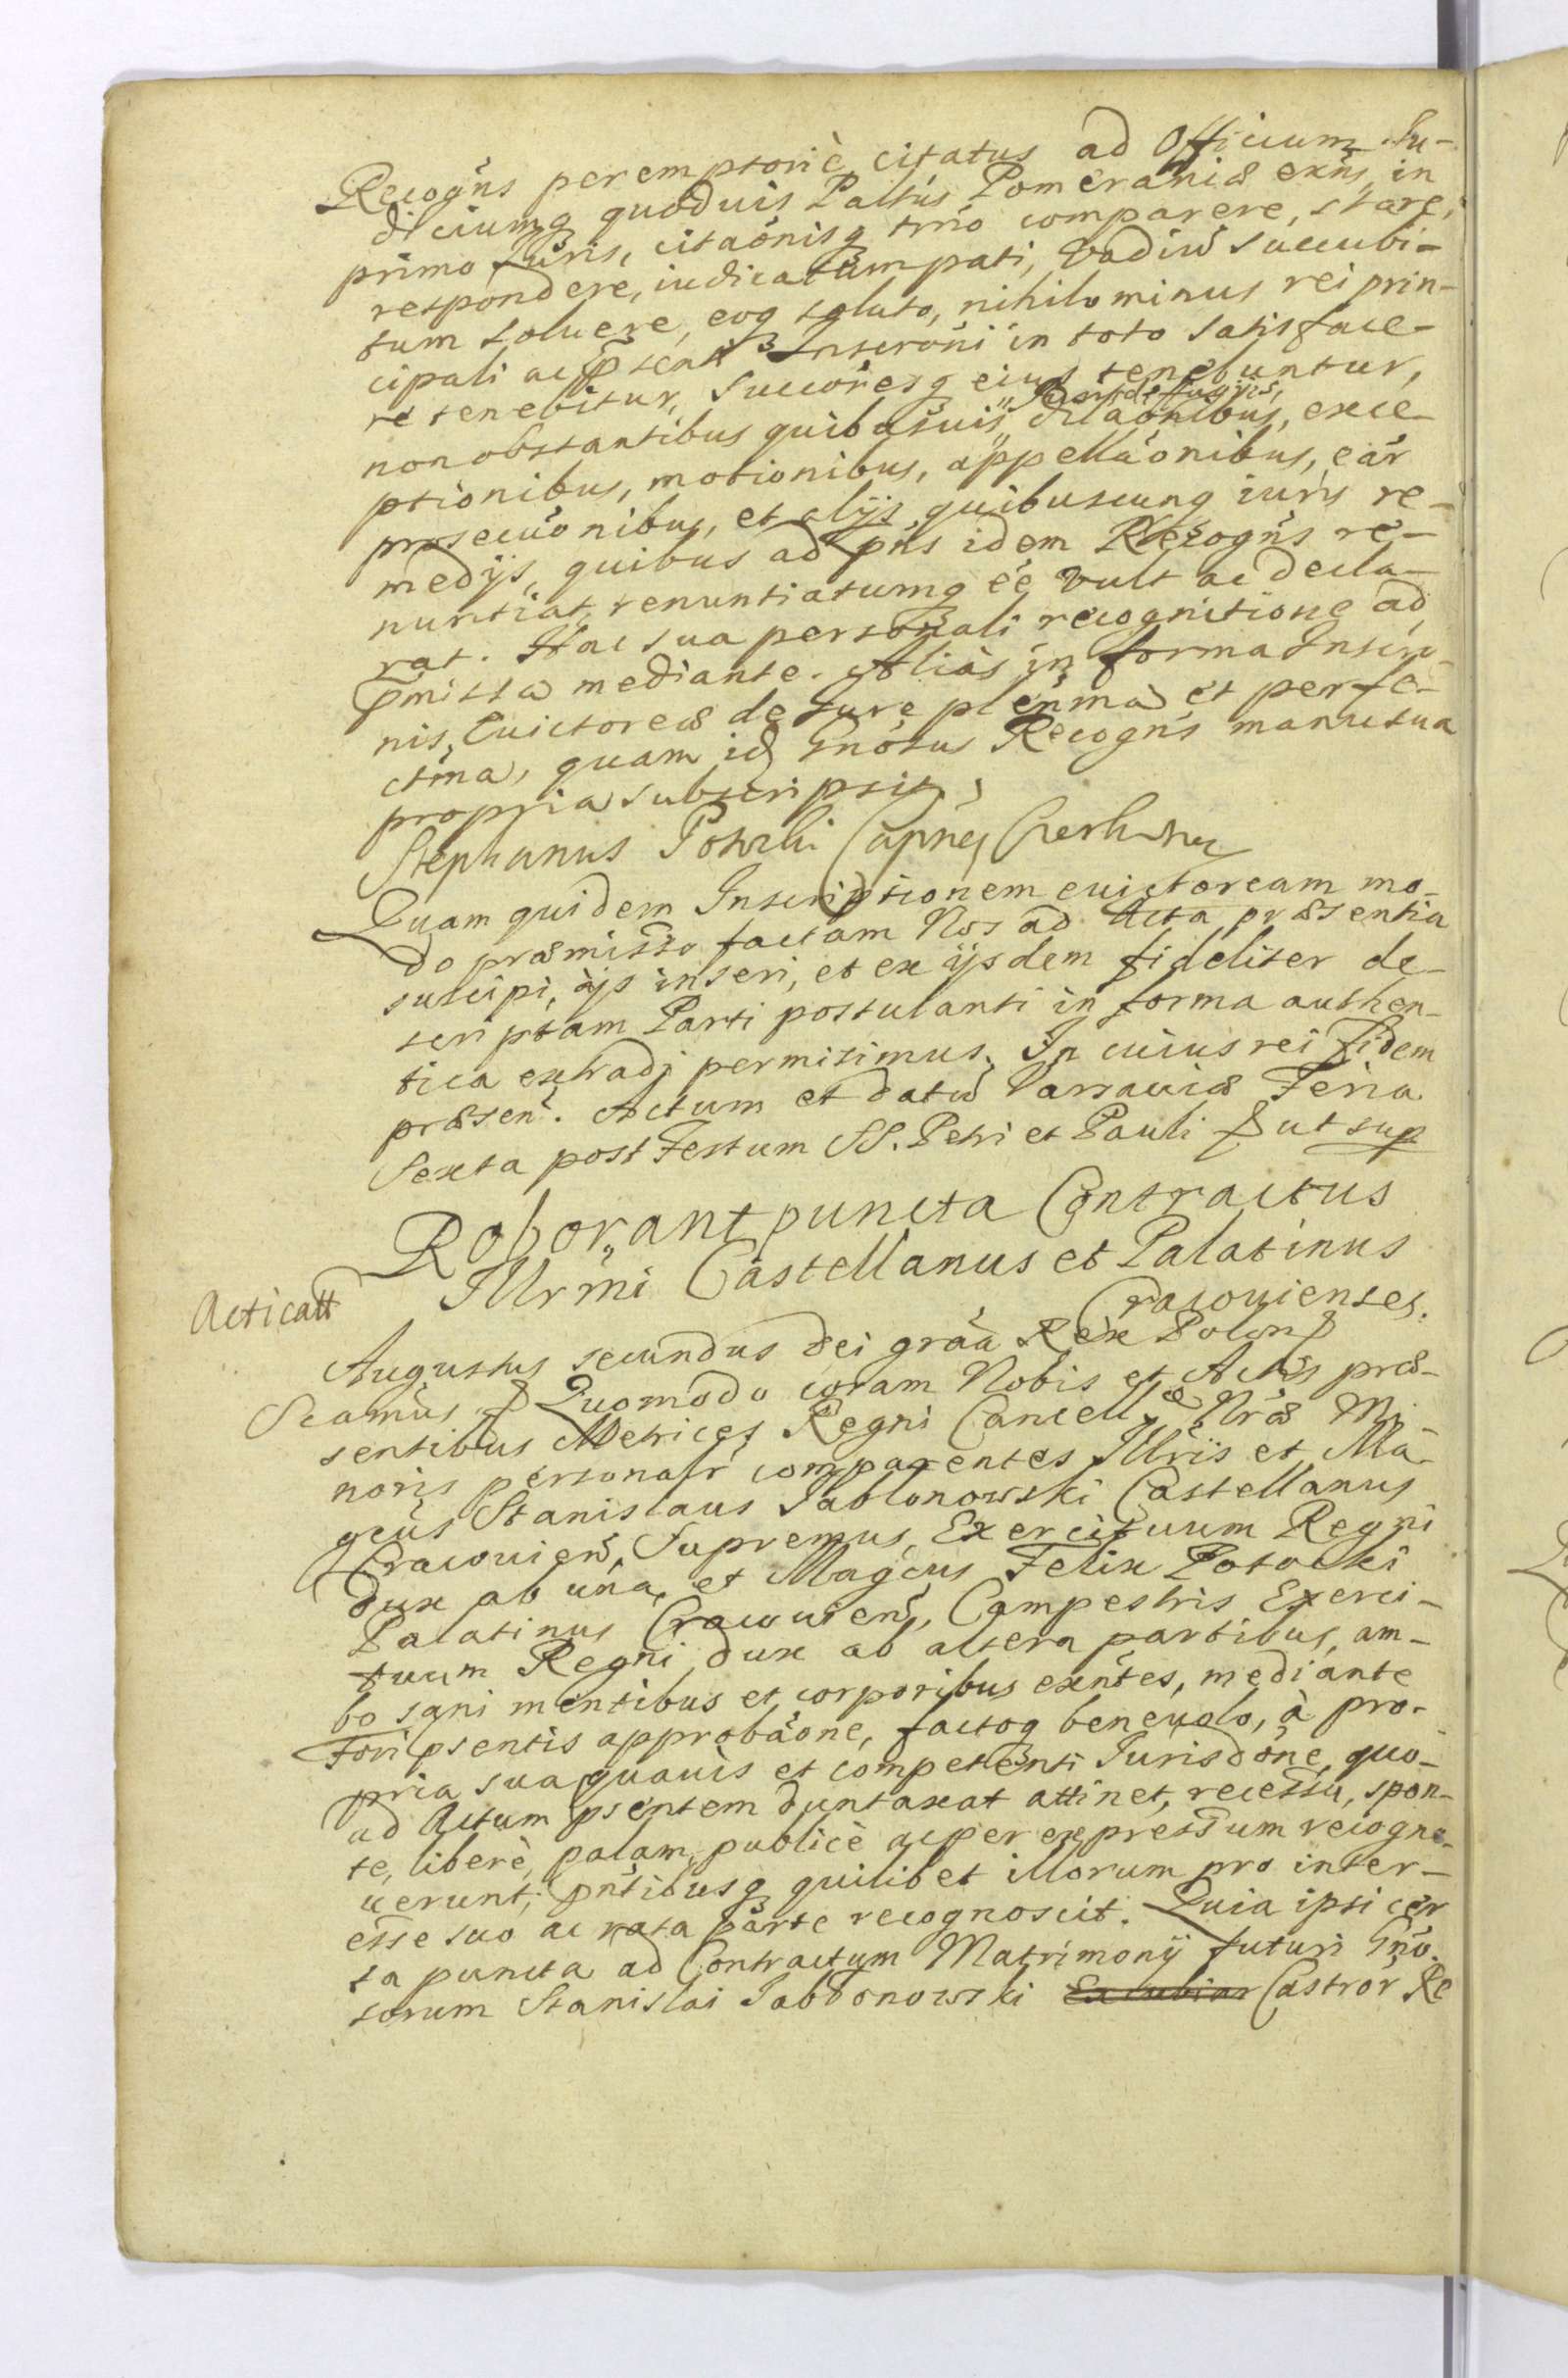 Recogñs peremptoriè citatus ad Officium Iu-
diciumq quoduis Paltús Pomeraniæ exñs, in
primo Iuris, citaõnisq trno comparere, stare,
respondere, iudicatum pati, Vadiũ succubi-
tum soluere, eoq soluto, nihilominus rei prin-
cipali ac Inscrõni in toto satisface-
re tenebitur, Succoresq eius tenebuntur,
non obstantibus quibusuis dilãonibus, exce-
ptionibus, motionibus, appellãonibus, eár
prosecuõnibus, et alijs quibuscunq iuris re-
medijs, quibus ad pñs idem Recogñs re-
nuntiat, renuntiatumq eé vult ac decla-
rat. Hac sua personali recognitione ad
pmissa mediante. Aliàs in forma Inscrip-
nis Euictoreæ de Iure plenma et perfe-
ctma, quam id Gnosus Recogñs manu sua
propria subscripsit,
Stephanus
Quam quidem Inscriptionem euictoream mo-
do præmisso factam Nos ad Acta præsentia
suscipi, ijs inseri, et ex ijsdem fideliter de-
scriptam Parti postulanti in forma authen-
tica extradi permisimus. In cuius rei fidem
præsen. Actum et datũ Varsauiæ Feria
Sexta post Festum SS. Petri et Pauli ut sup
Roborant puncta Contractus
Illrmi Castellanus et Palatinus
Cracouienses.
Acticatt
Augustus secundus Dei grãa Rex Polon
Scamus Quomodo coram Nobis et Actis præ-
sentibus Metrices Regni Cancellæ Nræ Mi-
noris personalr comparentes Illris et Ma-
gcus Stanislaus Jablonowski Castellanus
Cracouien, Supremus Exercituum Regni
dux ab una, et Magcus Felix Potocki
Palatinus Cracouien, Campestris Exerci-
tuum Regni dux ab altera partibus, am-
bo sani mentibus et corporibus exñtes, mediante
Fori psentis approbãone, factoq beneuolo, à pro-
pria sua quauis et competenti Iurisdõne, quo-
ad Actum psentem duntaxat attinet, recessu, spon-
te, liberè, palam, publicè ac per expressum recogno-
uerunt, pñtibusq quilibet illorum pro inter-
esse suo ac rata parte recognoscit. Quia ipsi cer
ta puncta ad Contractum Matrimonij futuri Gno-
sorum Stanislai Jabłonowski Castror Re